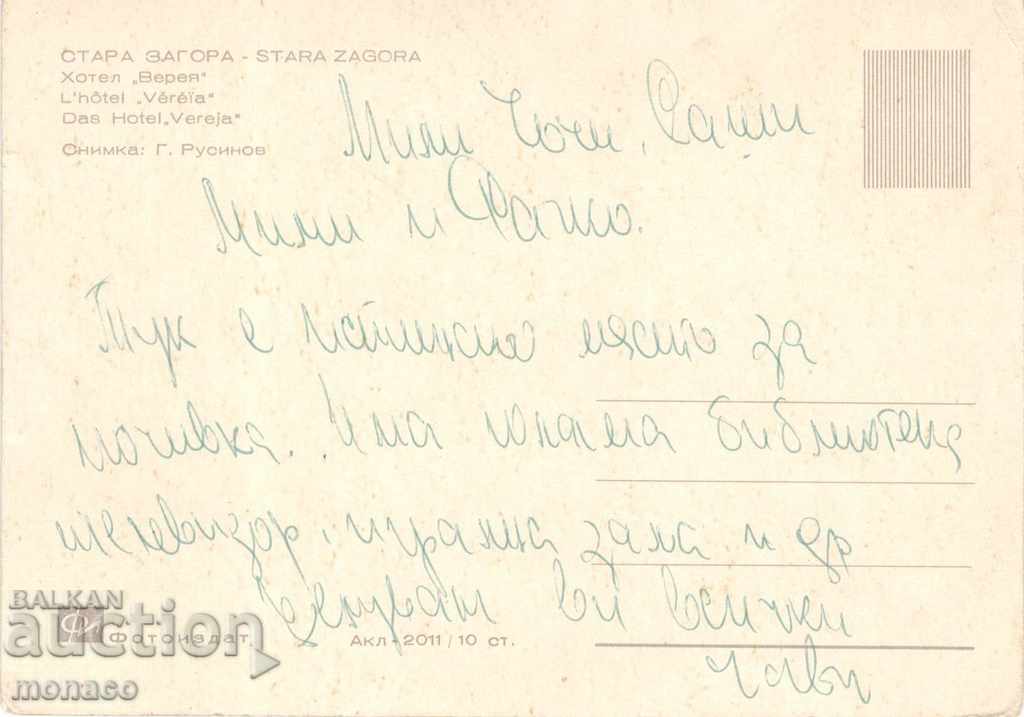 СТАРА ЗАГОРА - STARA ZAGORA
Хотел „Верея"
L'hôtel „Véréïa"
Das Hotel „Vereja"
Снимка: Г. Русинов
Мили Чочи, Саши
Мими и Рачко.
Тук е истинско място за
почивка. Има голяма библиотека
телевизор, игрална зала и др
Целувам Ви всички
BALKAN
auction
monaco
Фотоиздат
Акл-2011/10 ст.